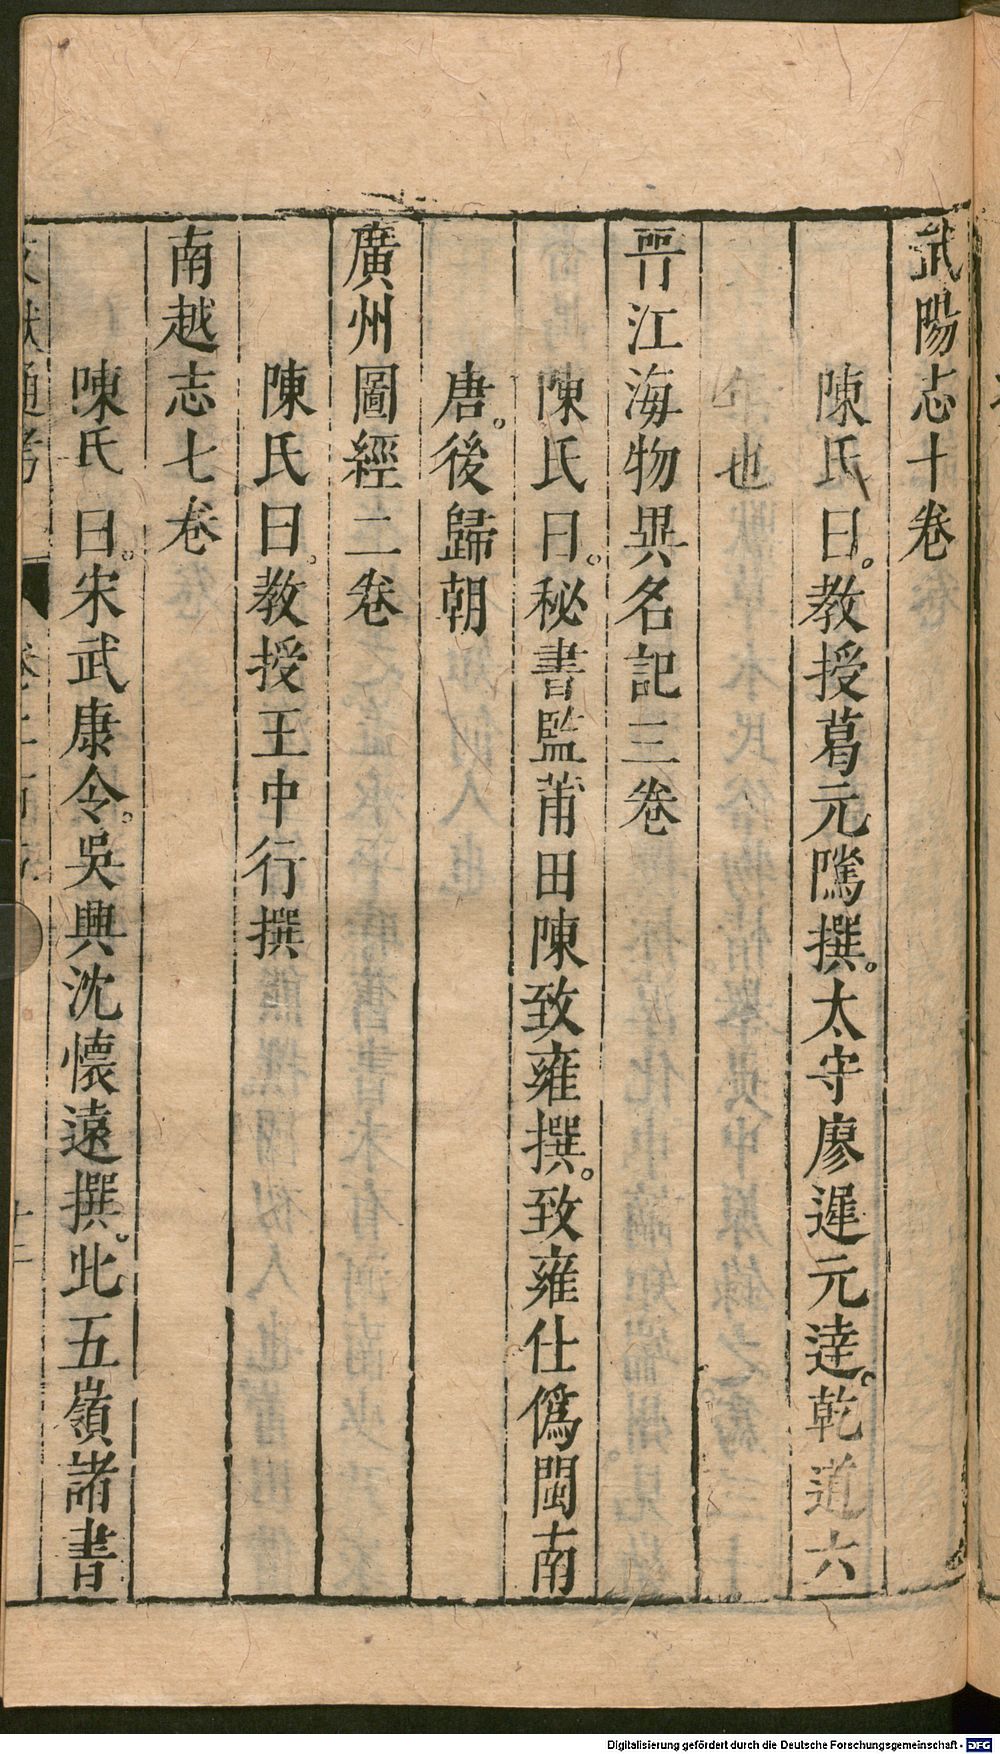 武陽志十卷
陳氏曰。教授葛元隲撰。太守廖遲元達。乾道六
年也
晉江海物異名記三卷
陳氏曰。秘書監莆田陳致雍撰。致雍仕僞閩南
唐。後歸朝
廣州圖經二卷
陳氏曰。教授王中行撰
南越志七卷
陳氏曰。宋武康令。吳興沈懷遠撰。此五嶺諸書
文獻通考 卷二百五 十二
Digitalisierung gefördert durch die Deutsche Forschungsgemeinschaft - DFG